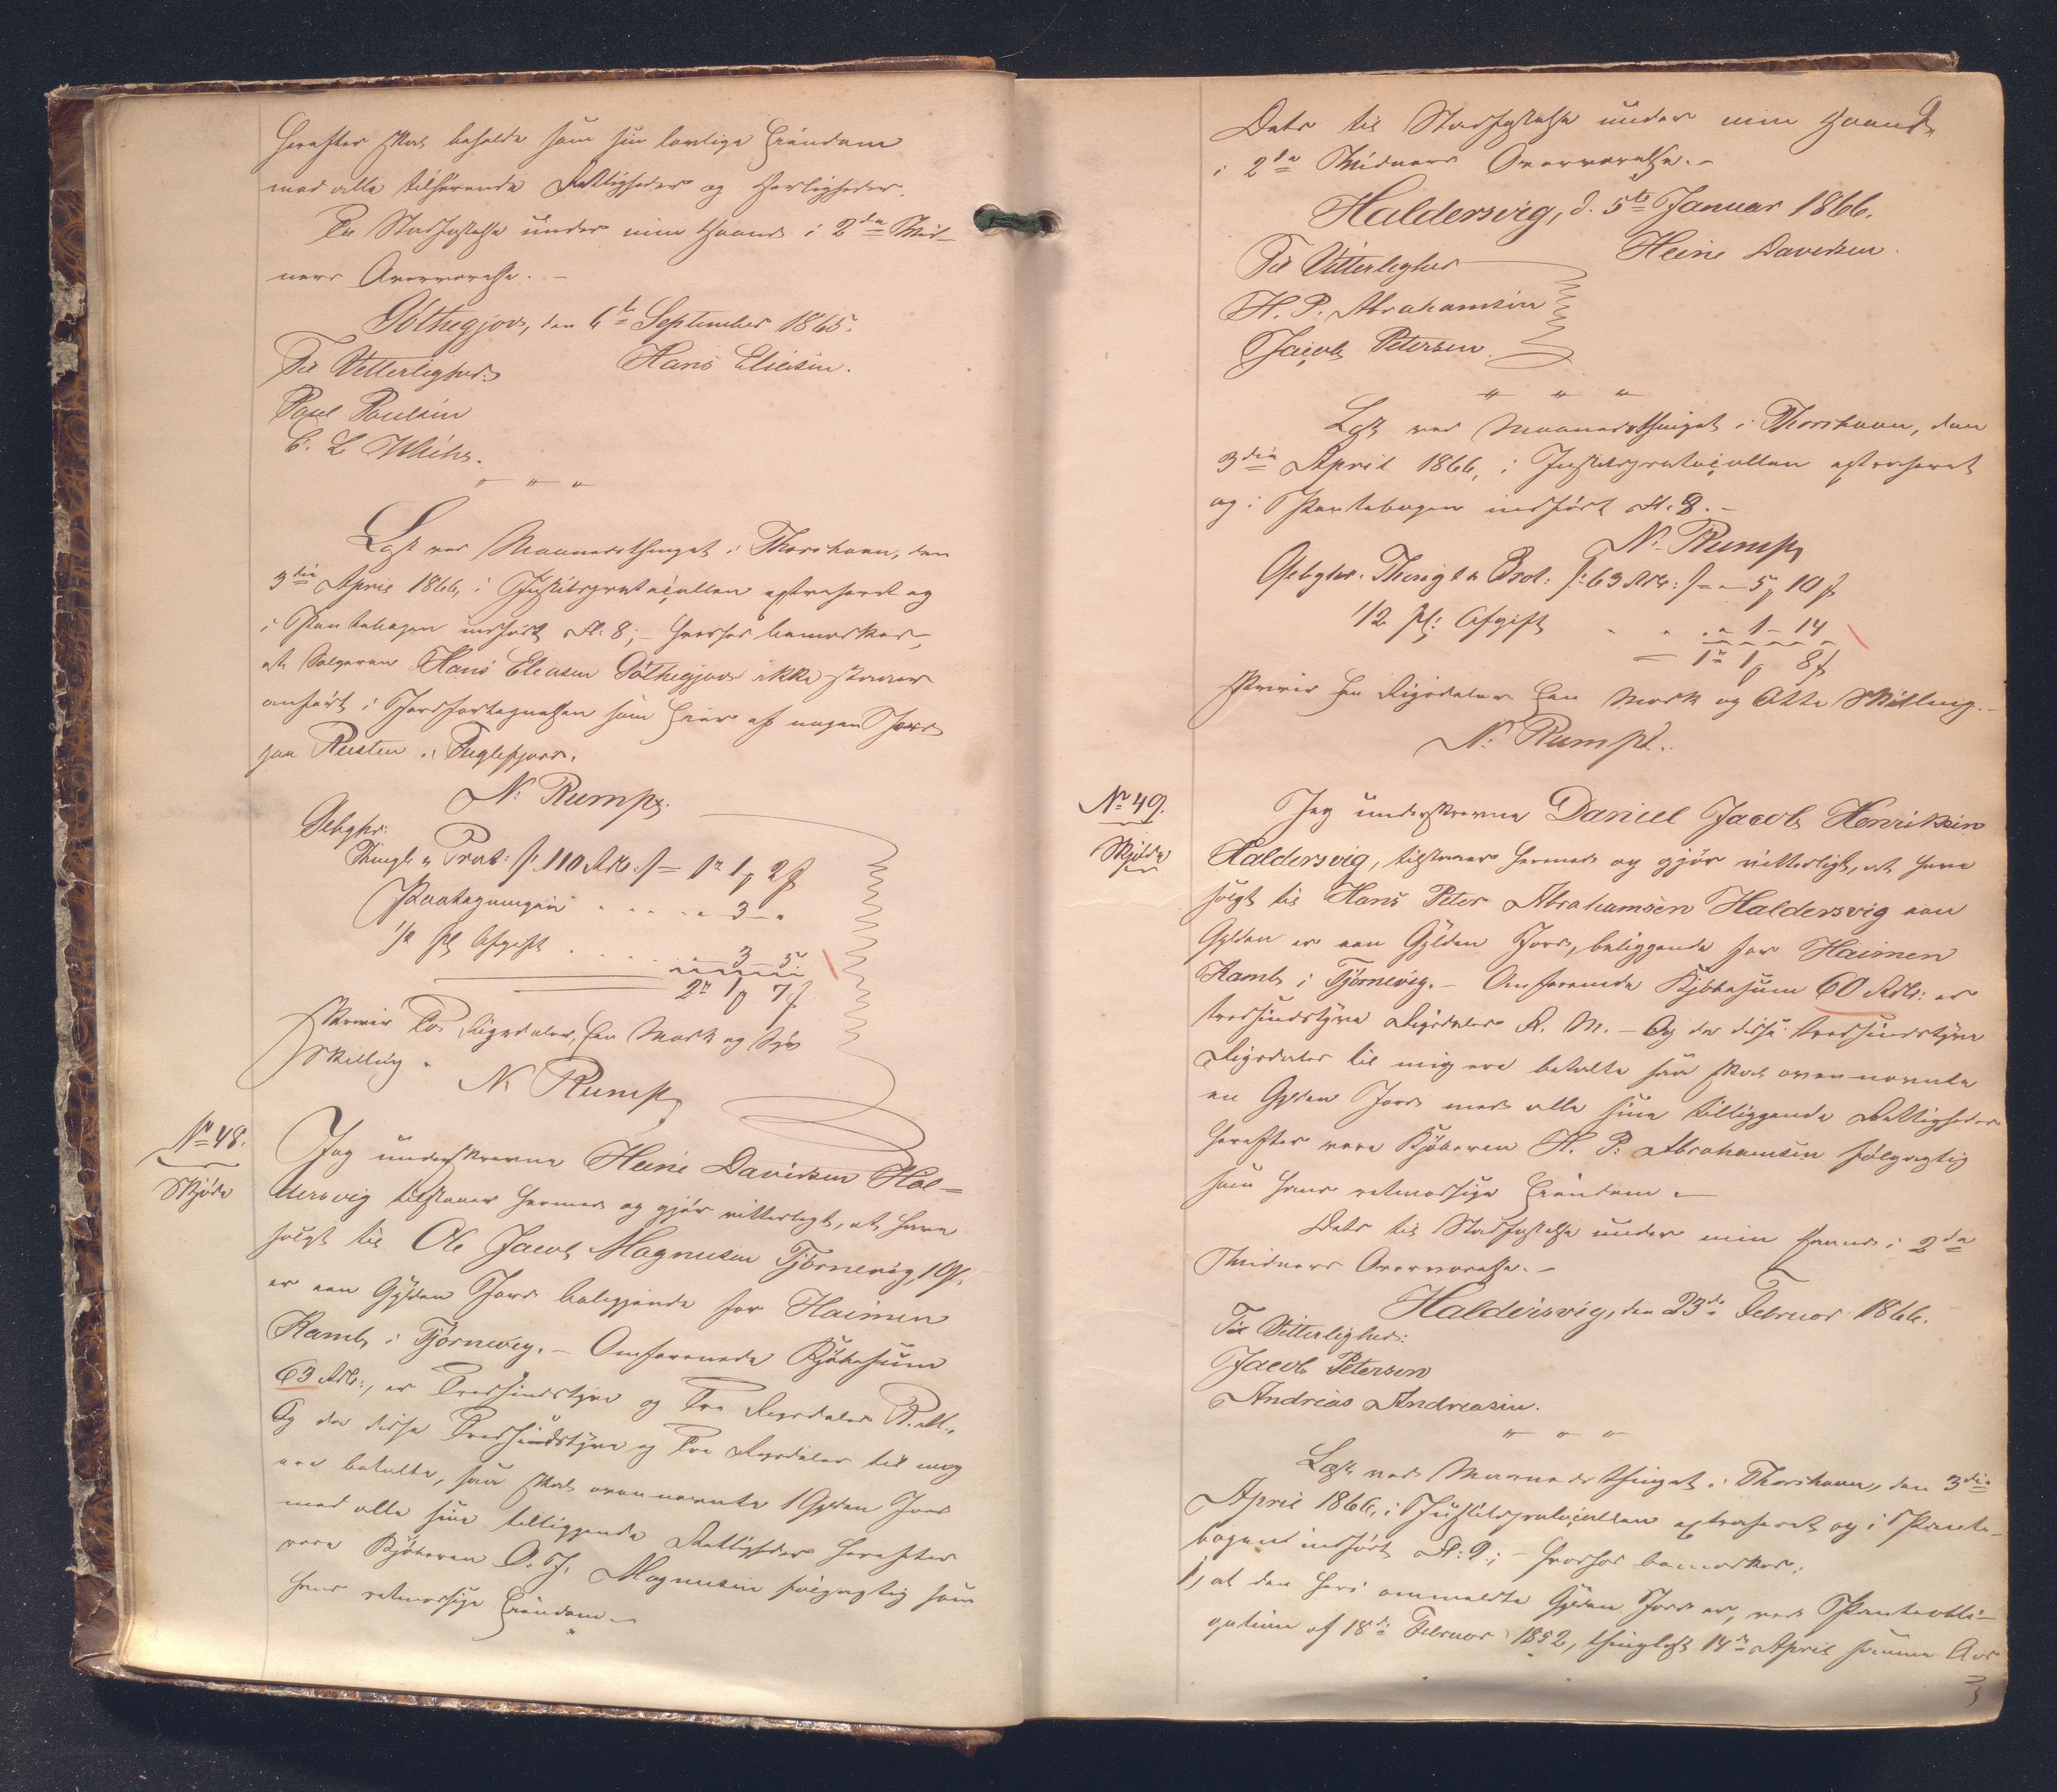 herefter skal beholde som sin lovlige Eiendom
med alle tilhørende Rettigheder og Herligheder.
Til Stadfæstelse under min Haand i 2de Vid-
ners Overværelse. -
Gøthegjov, den 6te September 1865.
Til Vitterlighed: Hans Eliasen.
Poul Poulsen
C. L.
" " "
Læst ved Maanedsthinget i Thorshavn, den
3die April 1866, i Justitsprotocollen extraheret og
i Pantebogen indført Fl. 8; - hvorhos bemærkes,
at Sælgeren Hans Eleasen Gøthegjov ikke staaer
anført i Jordfortegnelsen som Eier af nogen Jord
paa Kusten i Fuglefjord.
N. Rump.
Gebyhr:
Thingl. & Prot: /: 110 Rdlr :/ = 1 rd 1 mk 2 ß
Paategningen . . . . . " 3 - "
1/2 pCt Afgift . . . . . " 3 5
2 rd 1 mk 7 ß
Skriver To Rigsdaler, Een Mark og Syv
Skilling.
N. Rump
No 48.
Skjøde
Jeg underskrevne Heine Davidsen Hal-
dersvig tilstaaer hermed og gjør vitterligt, at have
solgt til Ole Jacob Magnusen Tjørnevig, 1 Gl.
er een Gylden Jord beliggende for Haimen
Kamb i Tjørnevig. - Omforenede Kjøbesum
63 Rdlr:, er Tredsindstyve og Tre Rigsdaler R. M.,
Og da disse Tredsindstyve og Tre Rigsdaler til mig
ere betalte, saa skal ovennævnte 1 Gylden Jord
med alle sine tilliggende Rettigheder herefter
være Kjøberen O. J. Magnusen følgagtig som
hans retmæssige Eiendom. -
9
Dets til Stadfæstelse under min Haand
i 2de Vidners Overværelse. -
Haldersvig, d. 5te Januar 1866.
Til Vitterlighed Heine Davidsen.
H. P. Abrahamsen
Jacob Petersen.
" " "
Læst ved Maanedsthinget i Thorshavn, den
3die April 1866, i Justitsprotocollen extraheret
og i Pantebogen indført Fl. 8. -
N. Rump
Gebyhr. Thingl & Prot: /: 63 Rdlr :/ = " 5 mk 10 ß
1/2 pCt: Afgift . . . " 1 - 14
= 1 rd 1 mk 8 ß
Skriver Een Rigsdaler Een Mark og Otte Skilling. -
N. Rump.
No 49.
Skjøde
Jeg underskrevne Daniel Jacob Henriksen
Haldersvig, tilstaaer hermed og gjør vitterligt, at have
solgt til Hans Peter Abrahamsen Haldersvig een
Gylden er een Gylden Jord, beliggende for Haimen
Kamb i Tjørnevig. - Omforenede Kjøbesum 60 Rdlr: er
tredsindstyve Rigsdaler R. M. - Og da disse tredsindstyve
Rigsdaler til mig ere betalte saa skal ovennævnte
en Gylden Jord med alle sine tilliggende Rettigheder
herefter være Kjøberen H. P. Abrahamsen følgagtig
som hans retmæssige Eiendom. -
Dets til Stadfæstelse under min Haand i 2de
Vidners Overværelse. -
Haldersvig, den 23de Februar 1866.
Til Vitterlighed:
Jacob Petersen
Andreas Andreasen.
" " "
Læst ved Maanedsthinget i Thorshavn, den 3die
April 1866, i Justitsprotocollen extraheret og i Pante-
bogen indført Fl: 9; - hvorhos bemærkes:
1, at den heri ommeldte Gylden Jord er, ved Panteobli-
gation af 18de Februar 1852, thinglæst 14de April samme Aar